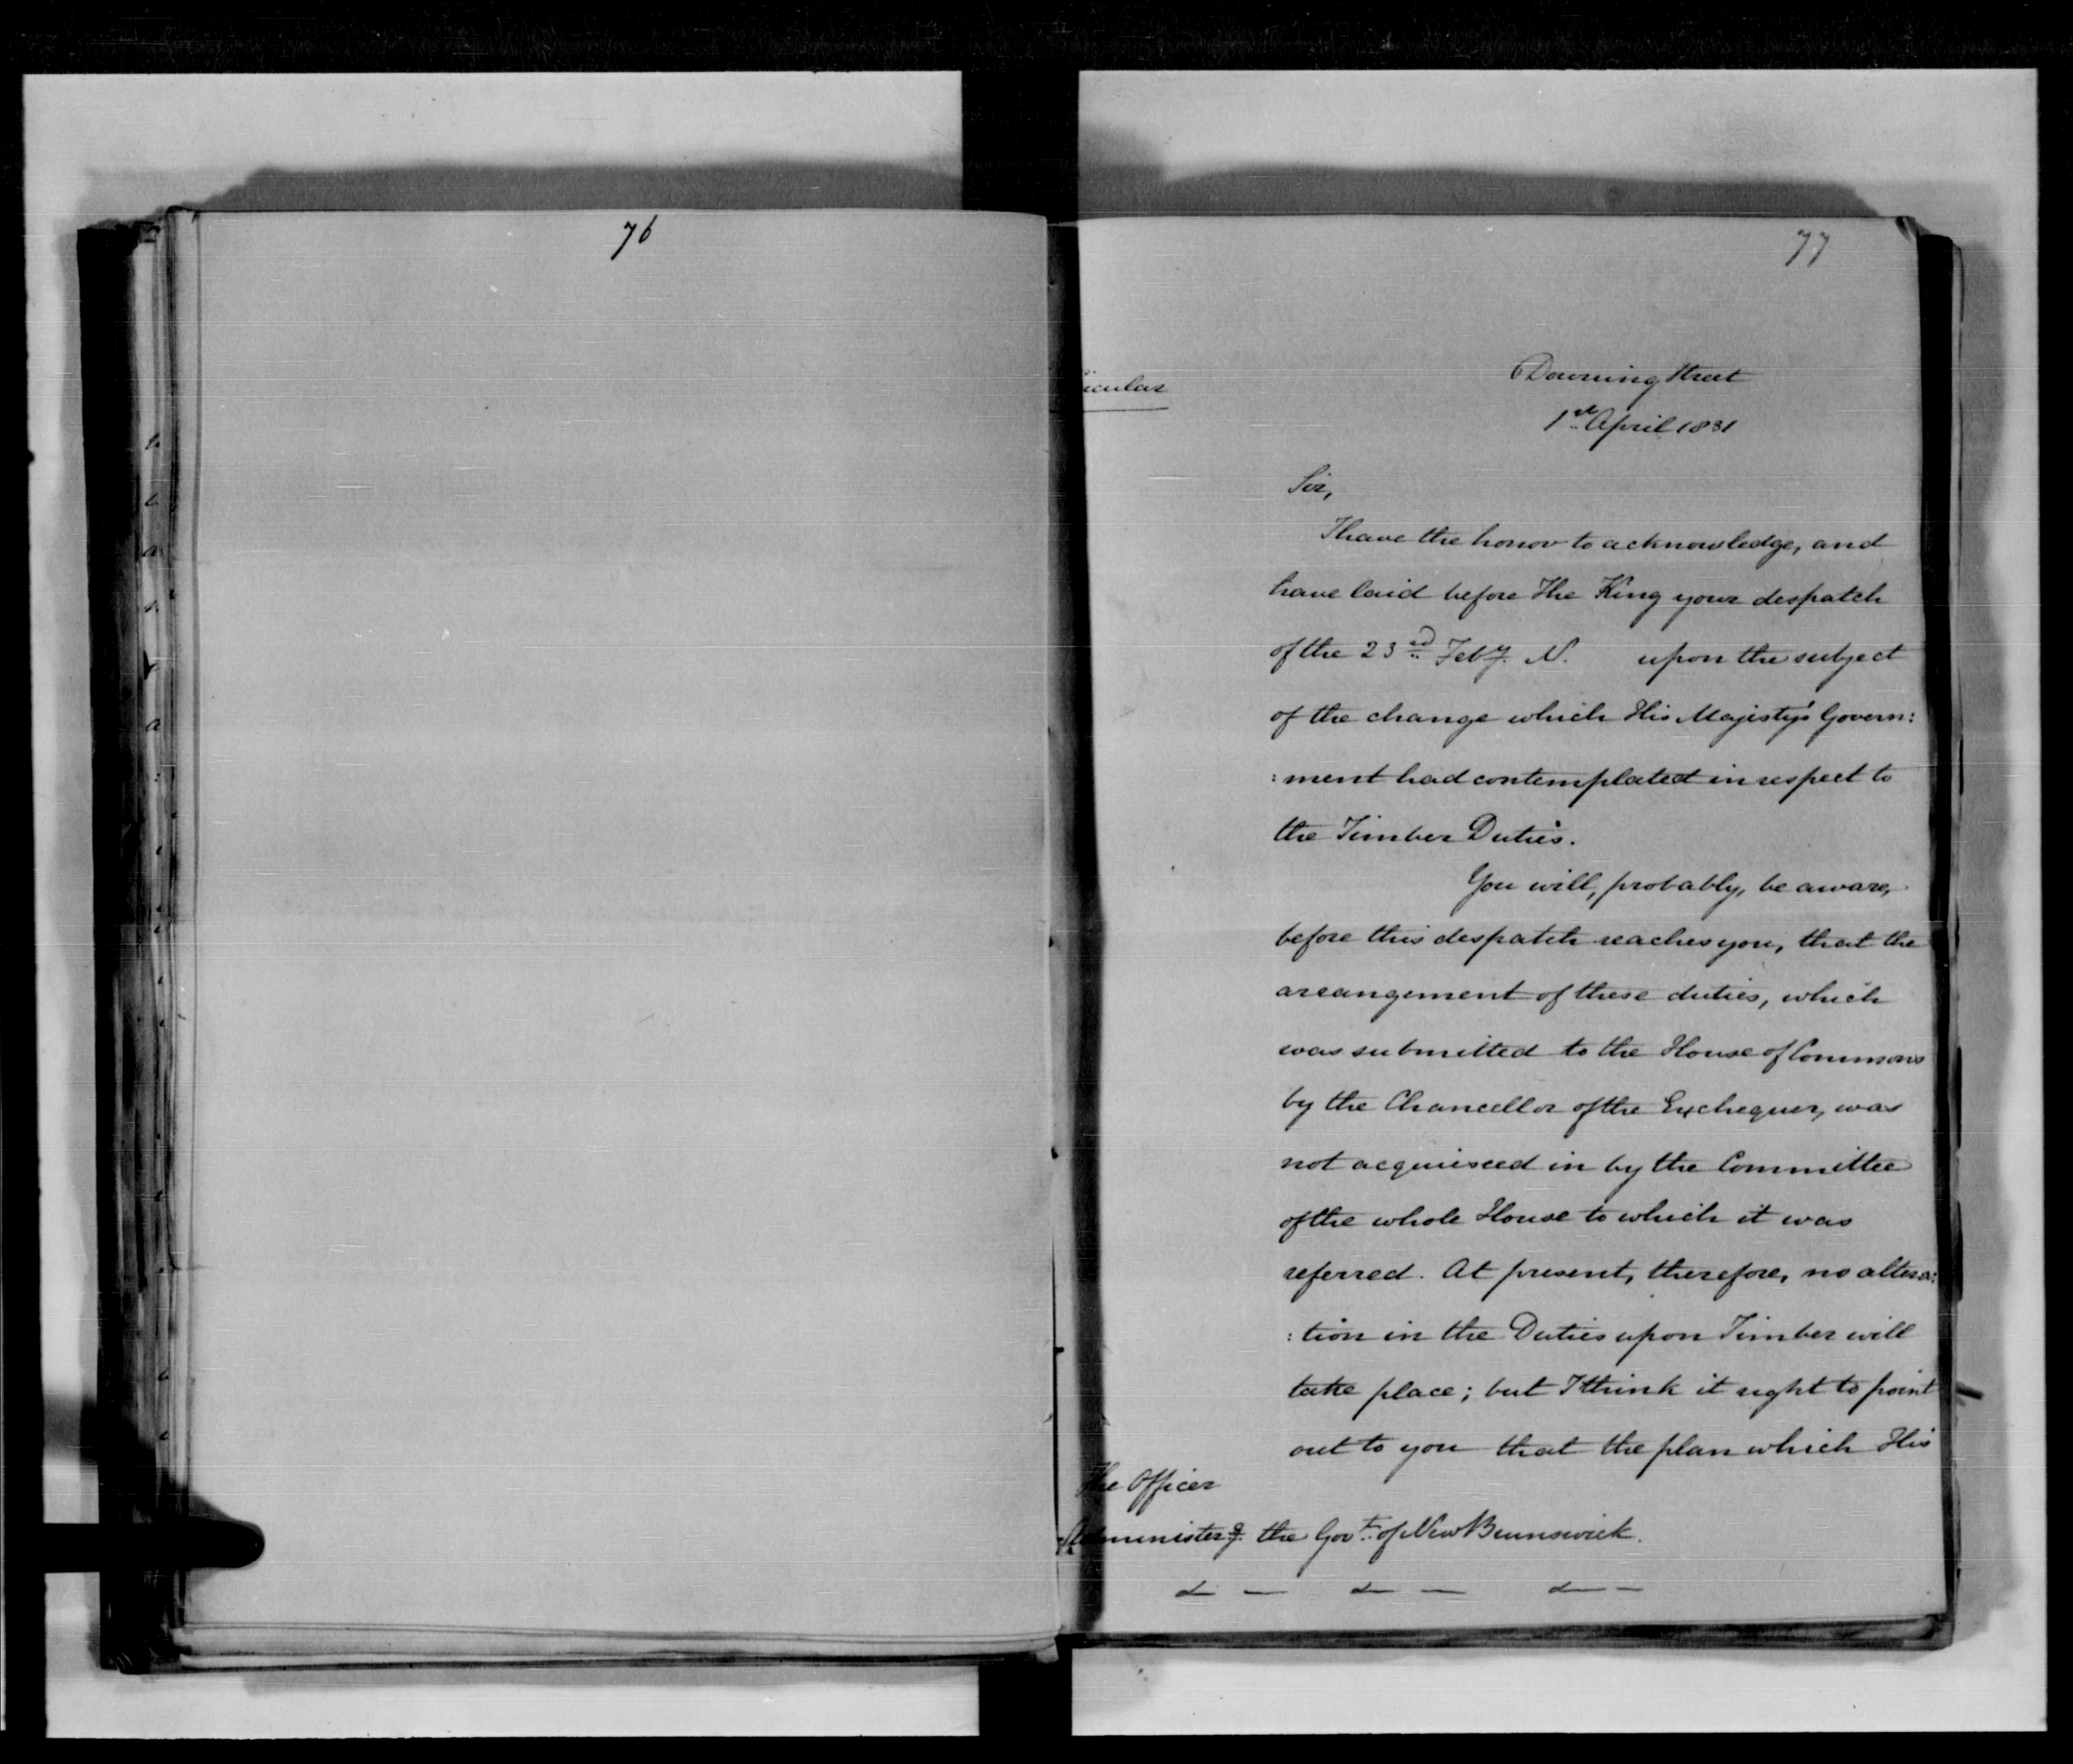 76
77
Downing Street
1st April 1831
Sir,
I have the honor to acknowledge, and
have laid before The King your despatch
of the 23rd Feby. N. upon the subject
of the change which His Majesty's Govern:
:ment had contemplated in respect to
the Timber Duties.
You will, probably, be aware,
before this despatch reaches you, that the
arrangement of these duties, which
was submitted to the House of Commons
by the Chancellor of the Exchequer, was
not acquiesced in by the Committee
of the whole House to which it was
referred. At present, therefore, no altera:
:tion in the Duties upon Timber will
take place; but I think it right to point
out to you that the plan which His
The Officer
Administerg. the Govt. of New Brunswick.